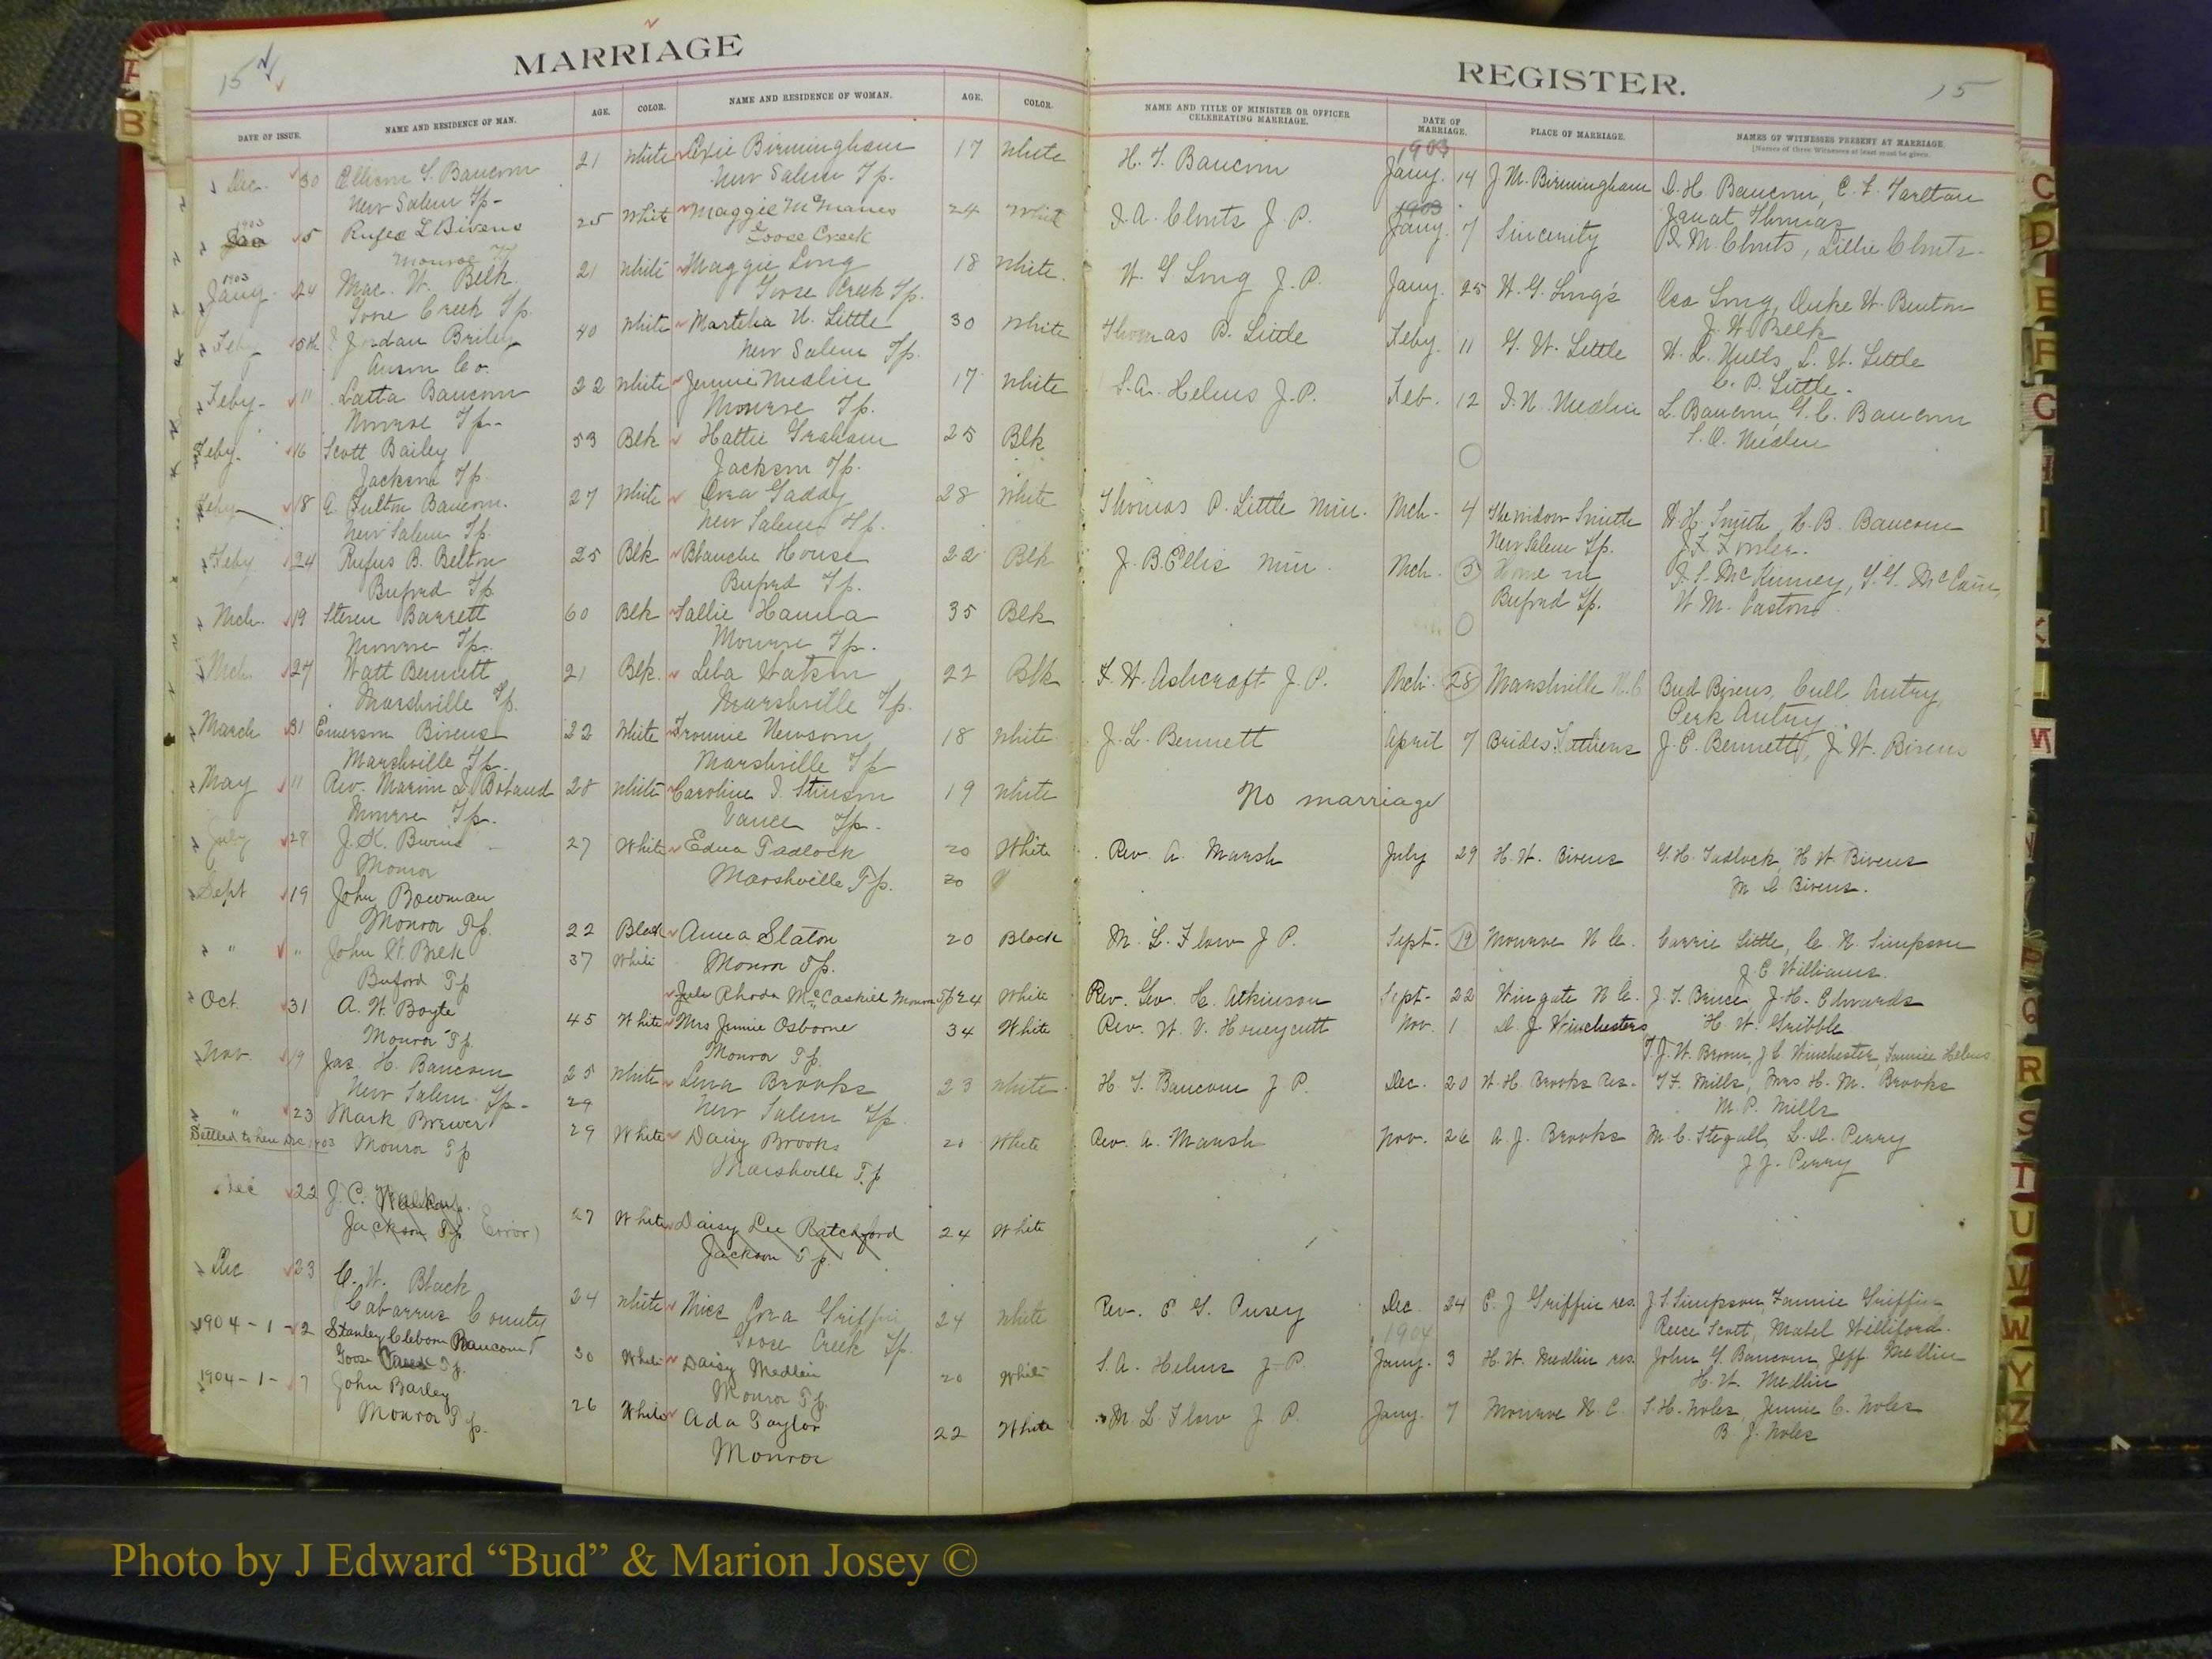 15
MARRIAGE
REGISTER.
15
DATE OF ISSUE.
NAME AND RESIDENCE OF MAN.
AGE.
COLOR.
NAME AND RESIDENCE OF WOMAN.
AGE.
COLOR.
NAME AND TITLE OF MINISTER OR OFFICER
CELEBRATING MARRIAGE.
DATE OF
MARRIAGE.
PLACE OF MARRIAGE.
NAMES OF WITNESSES PRESENT AT MARRIAGE.
[Names of three Witnesses at least must be given.
1903
Dec. 30 S. Baucom 21 White Birmingham 17 White H. T. Baucom Jany. 14 J. M. Birmingham D. H. Baucom, C. L. Tarlton
New Salem Tp. New Salem Tp. Thomas
1903 1903
Jan 5 L Bivens 25 White Maggie McManus 24 White I. A. Clonts J. P. Jany. 7 Sincerity M. Clonts, Lillie Clonts
Monroe Tp Goose Creek
1903
Jany. 24 Mac. W. Belk 21 White Maggie Long 18 White W. G. Long J. P. Jany. 25 W. G. Long's Long, Duke W. Benton
Goose Creek Tp. Goose Creek Tp. J. W. Belk
Feby 5th Jordan Briley 40 White Little 30 White Thomas P. Little Feby. 11 G. W. Little L. W. Little
Anson Co. New Salem Tp. C. P. Little
Feby. 11 Latta Baucom 22 White Jennie Medlin 17 White S. A. Helms J. P. Feb. 12 Medlin L. Baucom, G. C. Baucom
Monroe Tp. Monroe Tp. Medlin
Feby. 16 Scott Bailey 53 Blk Hattie Graham 25 Blk
Jackson Tp. Jackson Tp.
Feby 18 A. Fulton Baucom 27 White Gaddy 28 White Thomas P. Little Min. Mch. 4 The widow Smith H. H. Smith, H. B. Baucom
New Salem Tp. New Salem Tp. New Salem Tp. J. F. Fowler.
Feby 24 Rufus B. Belton 25 Blk Blanche House 22 Blk J. B. Ellis Min. Mch. 5 Home in McKinney, McCain,
Buford Tp. Buford Tp. Buford Tp. W. M. Caston
Mch. 19 Steven Barrett 60 Blk Sallie 35 Blk
Monroe Tp. Monroe Tp.
Mch. 24 Watt Bennett 21 Blk. 22 Blk F. W. Ashcraft J. P. Mch. 28 Marshville N. C Bud Bivens, Cull Autry,
Marshville Tp. Marshville Tp. Perk Autry
March 31 Emerson Bivens 22 White Newsom 18 White J. L. Bennett April 7 Brides Fathers J. E. Bennett, J. W. Bivens
Marshville Tp. Marshville Tp
May 11 Rev. 28 White Caroline Stinson 19 White No marriage
Monroe Tp. Vance Tp.
July 29 J. K. Burns 27 White Edna Tadlock 20 White Rev. A. Marsh July 29 H. W. Bivens G. H. Tadlock, H. W. Bivens
Monroe Marshville Tp. 20 Bivens.
Sept 19 John Bowman 22 Black Anna Slaton 20 Black M. L. Flow J. P. Sept. 19 Monroe N. C. Carrie Little, Simpson
Monroe Tp. Monroe Tp. J. C. Williams.
" " John W. Belk 37 White Rhoda McCaskill Monroe Tp 24 White Rev. Geo. H. Atkinson Sept. 22 Wingate N. C. J. T. Bruce, J. H. Edwards
Buford Tp H. W. Gribble
Oct. 31 A. W. Boyte 45 White Mrs Jennie Osborne 34 White Rev. W. V. Honeycutt Nov. 1 Winchesters J. W. Broom, J. C. Winchester, Fannie Helms
Monroe Tp. Monroe Tp.
Nov. 19 Jas. H. Baucom 25 White Lena Brooks 23 White H. T. Baucom J. P. Dec. 20 W. H. Brooks Res. T. F. Mills, Mrs H. M. Brooks
New Salem Tp. 29 New Salem Tp. M. P. Mills
" 23 Mark Brewer 29 White Daisy Brooks 20 White Rev. A. Marsh Nov. 26 A. J. Brooks M. C. Stegall, L. D. Perry
Settled to here Dec 1903 Monroe Tp Marshville Tp J. J. Perry
Dec 22 J. C. 27 White Daisy Lee Ratchford 24 White
Jackson Tp. Error) Jackson Tp.
Dec 23 C. W. Black 24 White Miss Griffin 24 White Rev. Pusey Dec. 24 E. J. Griffin res. J. S. Simpson, Fannie Griffin
Cabarrus County Goose Creek Tp. 1904 Reece Scott, Mabel Williford.
1904 - 1 - 2 Stanley Cleborn Baucom 30 White Daisy Medlin 20 White S. A. Helms J. P. Jany. 3 H. W. Medlin res. John G. Baucom, Jeff Medlin
Goose Creek Tp. Monroe Tp. H. W. Medlin
1904 - 1 - 7 John Barley 26 White Ada Taylor 22 White M. L. Flow J. P. Jany. 7 Monroe N. C. S. H. Noles, Jennie C. Noles
Monroe Tp. Monroe B. J. Noles
A
B
C
D
E
F
G
H
I
K
M
N
P
Q
R
S
T
U
V
W
Y
Z
Photo by J Edward “Bud” & Marion Josey ©